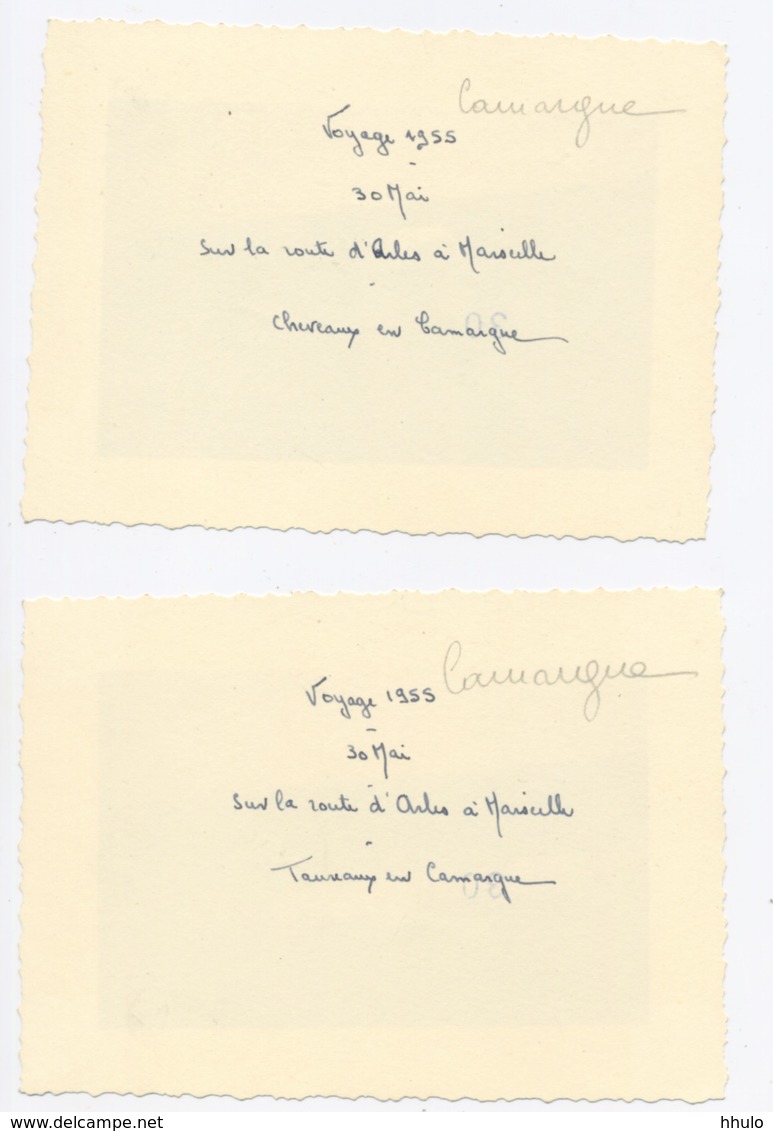 Camargue
Voyage 1955
-
30 Mai
Sur la route d'Arles à Marseille
-
Cheveaux en Camargue
30
Camargue
Voyage 1955
-
30 Mai
-
Sur la route d'Arles à Marseille
-
Taureaux en Camargue
30
www.delcampe.net
hhulo